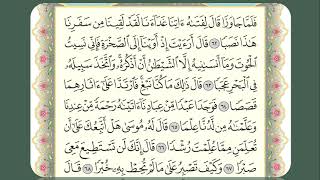 فَلَمَّا جَاوَزَا قَالَ لِفَتَىٰهُ ءَاتِنَا غَدَآءَنَا لَقَدْ لَقِينَا مِن سَفَرِنَا
هَٰذَا نَصَبًا ٦٢ قَالَ أَرَءَيْتَ إِذْ أَوَيْنَآ إِلَى ٱلصَّخْرَةِ فَإِنِّي نَسِيتُ
ٱلْحُوتَ وَمَآ أَنسَىٰنِيهُ إِلَّا ٱلشَّيْطَٰنُ أَنْ أَذْكُرَهُۥ وَٱتَّخَذَ سَبِيلَهُۥ
فِي ٱلْبَحْرِ عَجَبًا ٦٣ قَالَ ذَٰلِكَ مَا كُنَّا نَبْغِ فَٱرْتَدَّا عَلَىٰٓ ءَاثَارِهِمَا
قَصَصًا ٦٤ فَوَجَدَا عَبْدًا مِّنْ عِبَادِنَآ ءَاتَيْنَٰهُ رَحْمَةً مِّنْ عِندِنَا
وَعَلَّمْنَٰهُ مِن لَّدُنَّا عِلْمًا ٦٥ قَالَ لَهُۥ مُوسَىٰ هَلْ أَتَّبِعُكَ عَلَىٰٓ أَن
تُعَلِّمَنِ مِمَّا عُلِّمْتَ رُشْدًا ٦٦ قَالَ إِنَّكَ لَن تَسْتَطِيعَ مَعِيَ
صَبْرًا ٦٧ وَكَيْفَ تَصْبِرُ عَلَىٰ مَا لَمْ تُحِطْ بِهِۦ خُبْرًا ٦٨ قَالَ